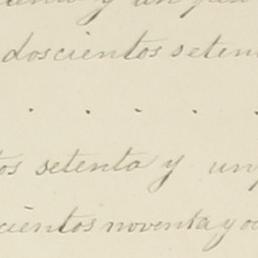 y un
doscientos seten
. . . . .
tos setenta y un
cientos noventa y o